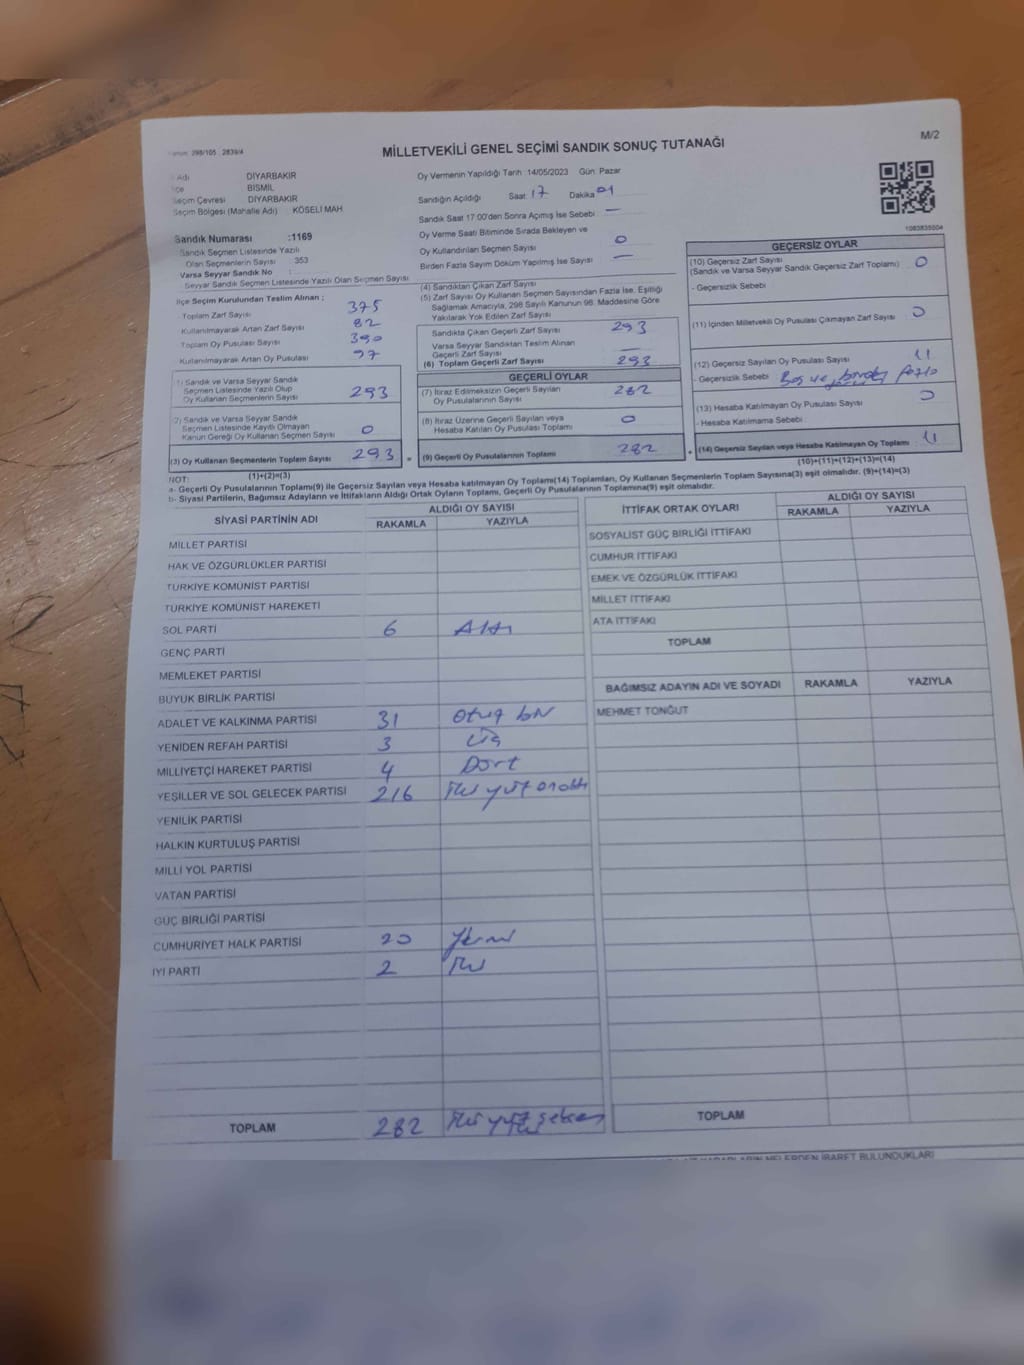 Kanun: 298/105 : 2839/4
MİLLETVEKİLİ GENEL SEÇİMİ SANDIK SONUÇ TUTANAĞI
M/2
İl Adı DİYARBAKIR
İlçe BİSMİL
Seçim Çevresi DİYARBAKIR
Seçim Bölgesi (Mahalle Adı) : KÖSELİ MAH
Sandık Numarası :1169
Sandık Seçmen Listesinde Yazılı
Olan Seçmenlerin Sayısı : 353
Varsa Seyyar Sandık No :
Seyyar Sandık Seçmen Listesinde Yazılı Olan Seçmen Sayısı
İlçe Seçim Kurulundan Teslim Alınan ;
Toplam Zarf Sayısı 375
Kullanılmayarak Artan Zarf Sayısı 82
Toplam Oy Pusulası Sayısı 390
Kullanılmayarak Artan Oy Pusulası 97
(1) Sandık ve Varsa Seyyar Sandık
Seçmen Listesinde Yazılı Olup
Oy Kullanan Seçmenlerin Sayısı 293
(2) Sandık ve Varsa Seyyar Sandık
Seçmen Listesinde Kayıtlı Olmayan
Kanun Gereği Oy Kullanan Seçmen Sayısı 0
(3) Oy Kullanan Seçmenlerin Toplam Sayısı 293 =
(1)+(2)=(3)
Oy Vermenin Yapıldığı Tarih :14/05/2023 Gün: Pazar
Sandığın Açıldığı Saat 17 Dakika 01
Sandık Saat 17:00'den Sonra Açımış İse Sebebi —
Oy Verme Saati Bitiminde Sırada Bekleyen ve
Oy Kullandırılan Seçmen Sayısı 0
Birden Fazla Sayım Döküm Yapılmış İse Sayısı —
(4) Sandıktan Çıkan Zarf Sayısı
(5) Zarf Sayısı Oy Kullanan Seçmen Sayısından Fazla İse, Eşitliği
Sağlamak Amacıyla, 298 Sayılı Kanunun 98. Maddesine Göre
Yakılarak Yok Edilen Zarf Sayısı
Sandıkta Çıkan Geçerli Zarf Sayısı 293
Varsa Seyyar Sandıktan Teslim Alınan
Geçerli Zarf Sayısı —
(6) Toplam Geçerli Zarf Sayısı 293
GEÇERLİ OYLAR
(7) İtiraz Edilmeksizin Geçerli Sayılan
Oy Pusulalarının Sayısı 282
(8) İtiraz Üzerine Geçerli Sayılan veya
Hesaba Katılan Oy Pusulası Toplamı 0
(9) Geçerli Oy Pusulalarının Toplamı 282 +
1083835004
GEÇERSİZ OYLAR
(10) Geçersiz Zarf Sayısı
(Sandık ve Varsa Seyyar Sandık Geçersiz Zarf Toplamı) 0
- Geçersizlik Sebebi :
(11) İçinden Milletvekili Oy Pusulası Çıkmayan Zarf Sayısı 0
(12) Geçersiz Sayılan Oy Pusulası Sayısı 11
- Geçersizlik Sebebi : Boş ve birden fazla
(13) Hesaba Katılmayan Oy Pusulası Sayısı 0
- Hesaba Katılmama Sebebi :
(14) Geçersiz Sayılan veya Hesaba Katılmayan Oy Toplamı 11
(10)+(11)+(12)+(13)=(14)
NOT:
a- Geçerli Oy Pusulalarının Toplamı(9) ile Geçersiz Sayılan veya Hesaba katılmayan Oy Toplamı(14) Toplamları, Oy Kullanan Seçmenlerin Toplam Sayısına(3) eşit olmalıdır. (9)+(14)=(3)
b- Siyasi Partilerin, Bağımsız Adayların ve İttifakların Aldığı Ortak Oyların Toplamı, Geçerli Oy Pusulalarının Toplamına(9) eşit olmalıdır.
SİYASİ PARTİNİN ADI
ALDIĞI OY SAYISI
RAKAMLA YAZIYLA
MİLLET PARTİSİ
HAK VE ÖZGÜRLÜKLER PARTİSİ
TÜRKİYE KOMÜNİST PARTİSİ
TÜRKİYE KOMÜNİST HAREKETİ
SOL PARTİ 6 Altı
GENÇ PARTİ
MEMLEKET PARTİSİ
BÜYÜK BİRLİK PARTİSİ
ADALET VE KALKINMA PARTİSİ 31 Otuz bir
YENİDEN REFAH PARTİSİ 3 Üç
MİLLİYETÇİ HAREKET PARTİSİ 4 Dört
YEŞİLLER VE SOL GELECEK PARTİSİ 216 İki yüz onaltı
YENİLİK PARTİSİ
HALKIN KURTULUŞ PARTİSİ
MİLLİ YOL PARTİSİ
VATAN PARTİSİ
GÜÇ BİRLİĞİ PARTİSİ
CUMHURİYET HALK PARTİSİ 20 Yirmi
İYİ PARTİ 2 İki
TOPLAM 282 İki yüz seksen iki
İTTİFAK ORTAK OYLARI
ALDIĞI OY SAYISI
RAKAMLA YAZIYLA
SOSYALİST GÜÇ BİRLİĞİ İTTİFAKI
CUMHUR İTTİFAKI
EMEK VE ÖZGÜRLÜK İTTİFAKI
MİLLET İTTİFAKI
ATA İTTİFAKI
TOPLAM
BAĞIMSIZ ADAYIN ADI VE SOYADI RAKAMLA YAZIYLA
MEHMET TONĞUT
TOPLAM
KARARLARIN NELERDEN İBARET BULUNDUKLARI